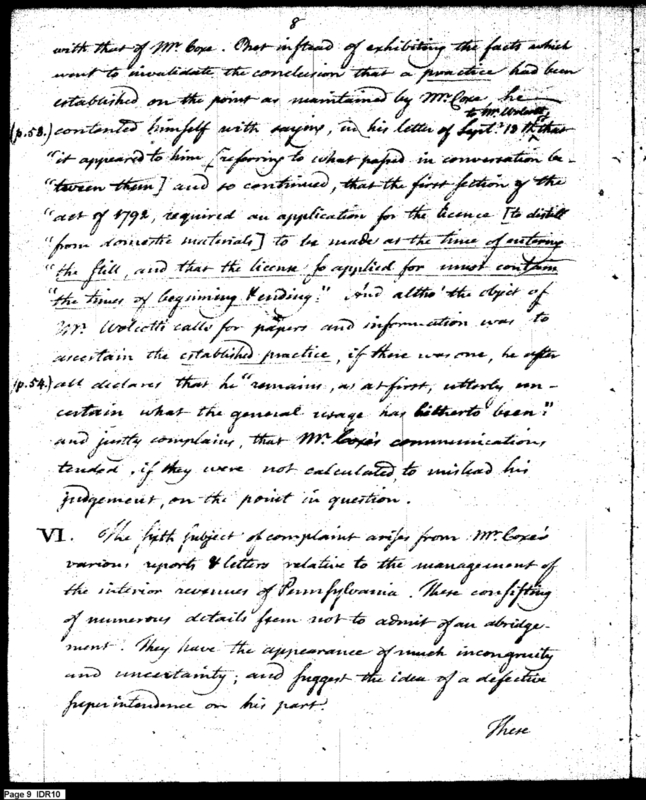 8
with that of Mr. Coxe. But instead of exhibiting the facts which
went to invalidate the conclusion that a practice had been
established on the point as maintained by Mr. Coxe, he
to Mr. Wolcott
(p.53.) contented himself with saying, in his letter of Sept. 18th, that
"it appeared to him [referring to what passed in conversation be-
"tween them] and so continued, that the first section of the
"act of 1792, required an application for the licence [to distill
"from domestic materials] to be made as the time of entering
"the still, and that the license so applied for must contain
"the times of beginning & ending." And altho' the object of
Mr. Wolcott's calls for papers and information was to
ascertain the established practice, if there was one, he after
(p.54.) all declares that he "remains, as at first, utterly un-
certain what the general usage has hitherto been":
and justly complains, that Mr. Coxe's communications
tended, if they were not calculated, to mislead his
judgement, on the point in question.
VI. The sixth subject of complaint arises from Mr. Coxe's
various reports & letters relative to the management of
the interior revenues of Pennsylvania. These consisting
of numerous details seem not to admit of an abridge-
ment. They have the appearance of much incongruity
and uncertainty; and suggest the idea of a defective
superintendence on his part.
These
Page 9 IDR10